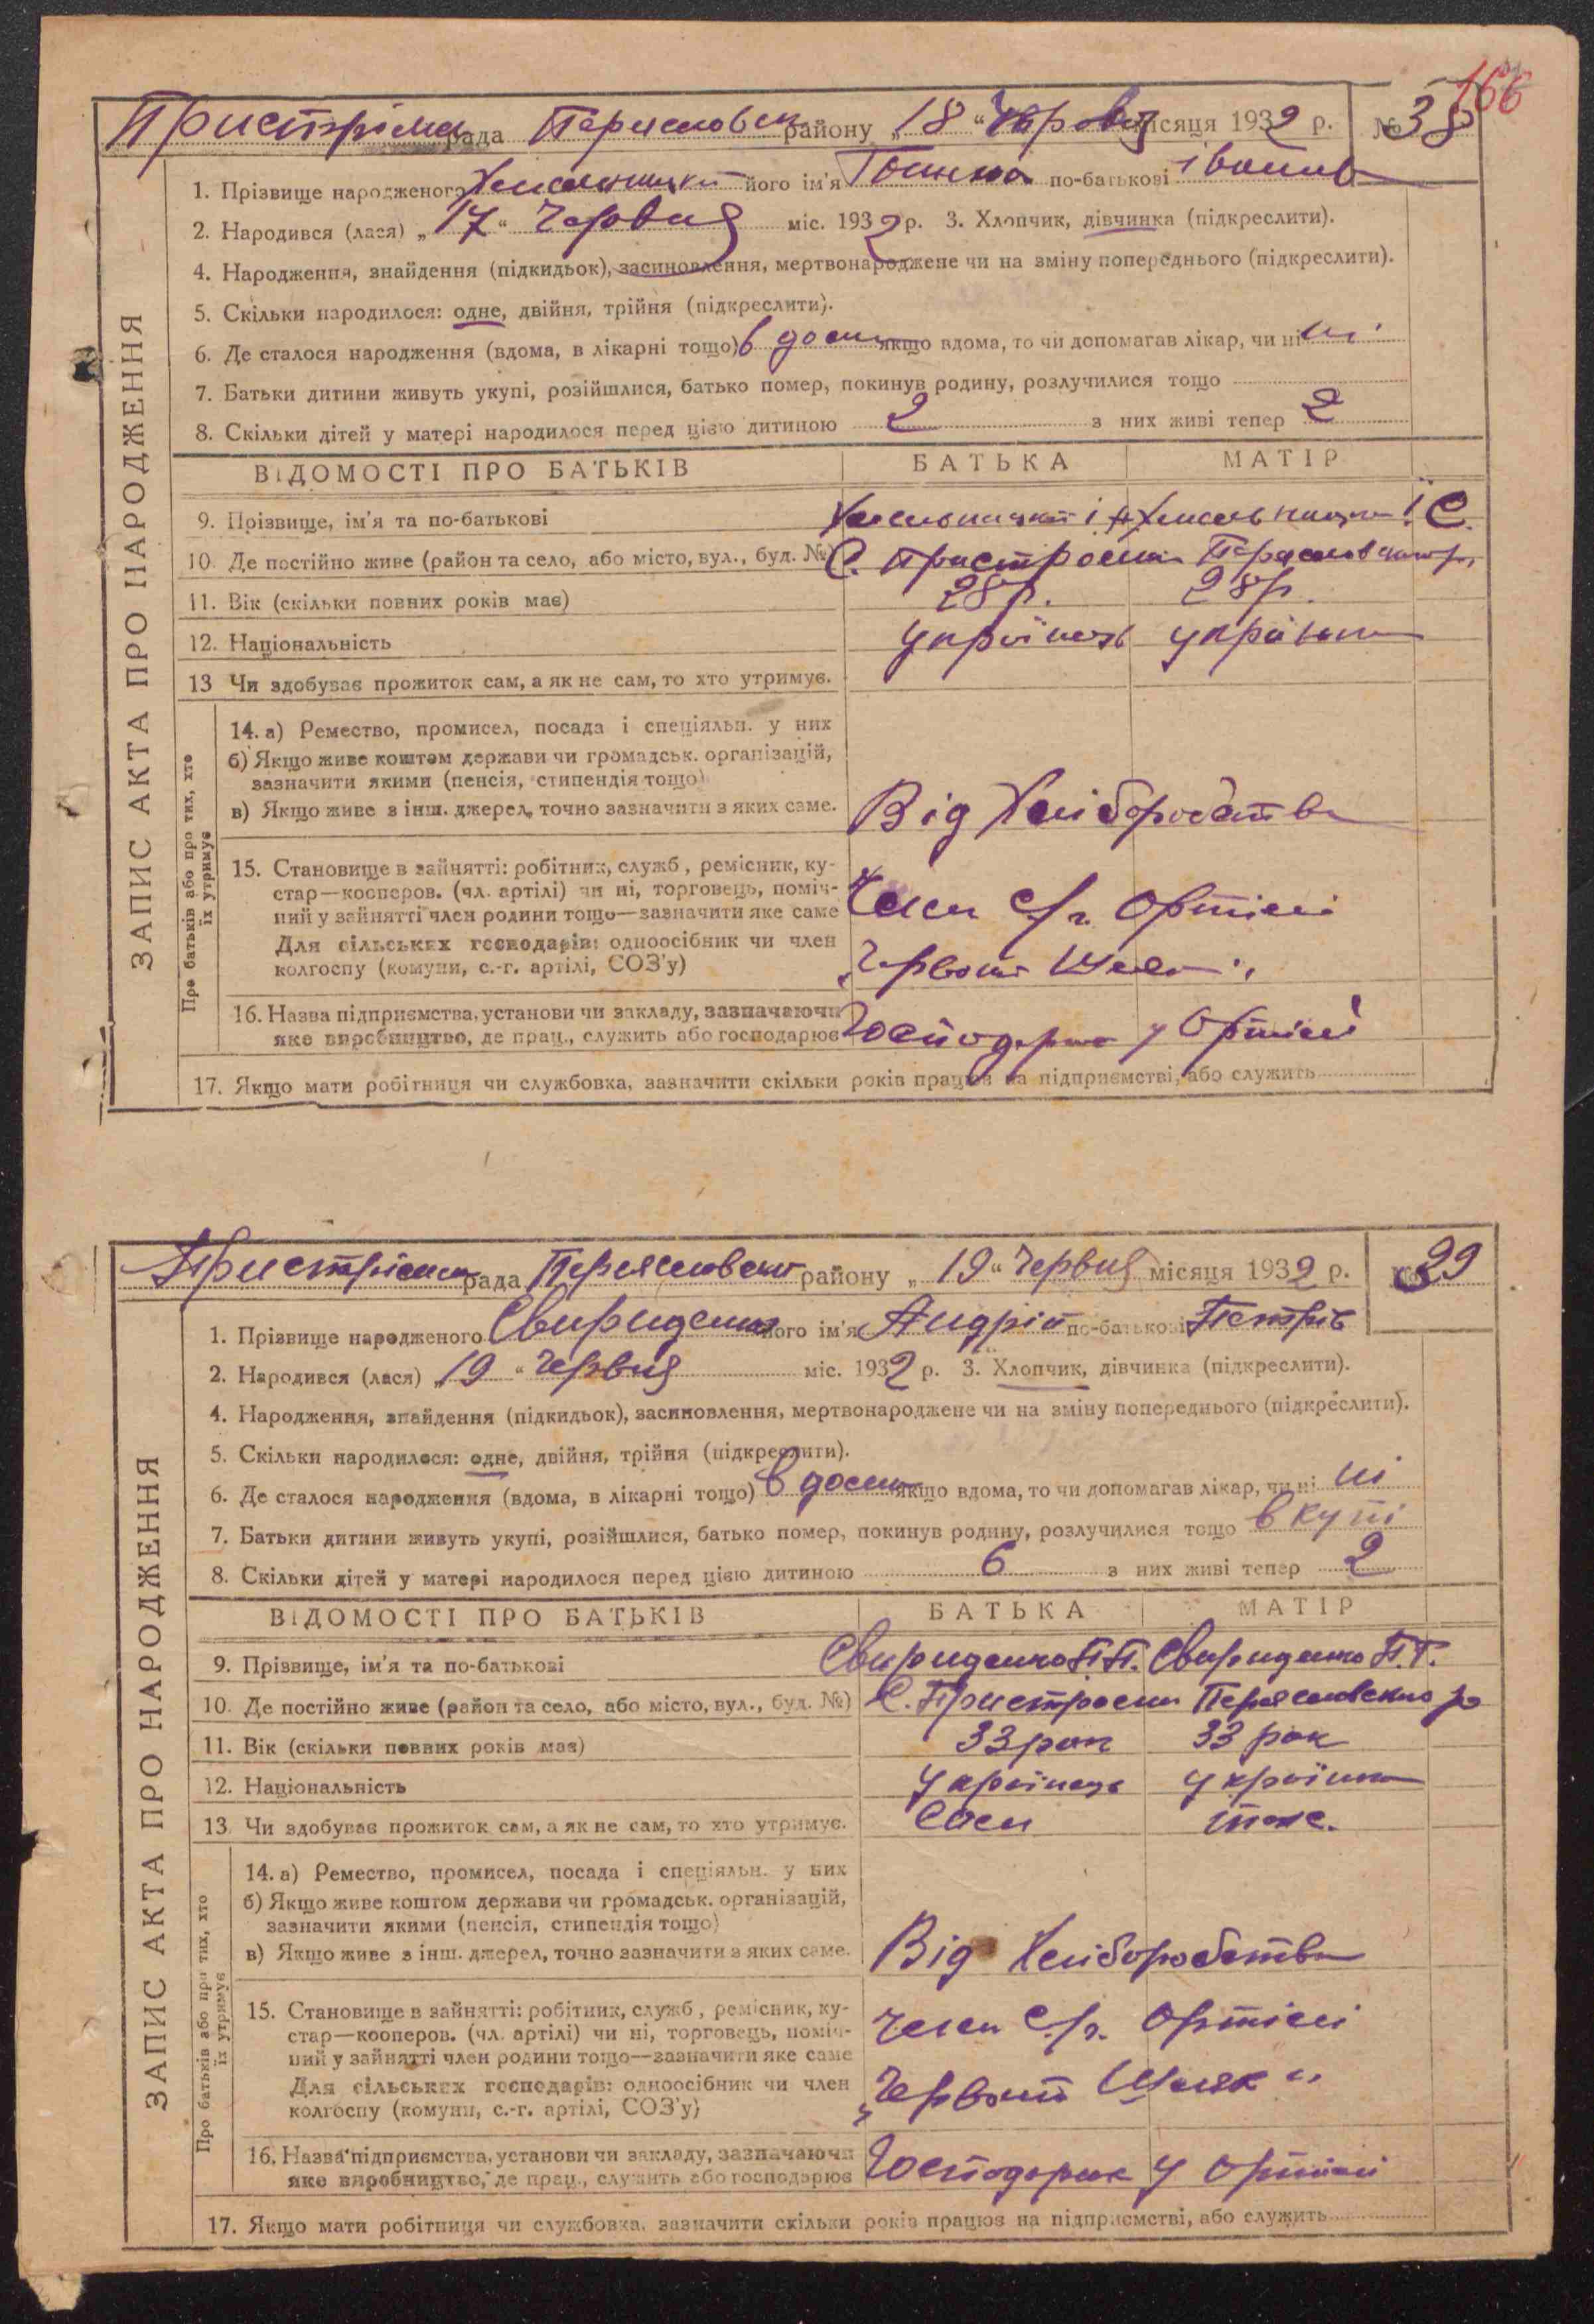 166
Пристрімсь рада Переяславськ району „18“ Червня місяця 1932 р. № 38
ЗАПИС АКТА ПРО НАРОДЖЕННЯ
1. Прізвище народженого Хмельницька його ім'я по-батькові Іванів
2. Народився (лася) „17“ Червня міс. 1932 р. 3. Хлопчик, дівчинка (підкреслити).
4. Народження, знайдення (підкидьок), засиновлення, мертвонароджене чи на зміну попереднього (підкреслити).
5. Скільки народилося: одне, двійня, трійня (підкреслити).
6. Де сталося народження (вдома, в лікарні тощо) в дома якщо вдома, то чи допомагав лікар, чи ні ні
7. Батьки дитини живуть укупі, розійшлися, батько помер, покинув родину, розлучилися тощо
8. Скільки дітей у матері народилося перед цією дитиною 2 з них живі тепер 2
ВІДОМОСТІ ПРО БАТЬКІВ БАТЬКА МАТІР
9. Прізвище, ім'я та по-батькові Хмельницький І Хмельницка І. С.
10. Де постійно живе (район та село, або місто, вул., буд. №) С. Пристроми Переяславськ р.
11. Вік (скільки повних років має) 28 р. 28 р.
12. Національність Українець Українка
13 Чи здобуває прожиток сам, а як не сам, то хто утримує.
Про батьків або про тих, хто їх утримує
14. а) Ремество, промисел, посада і спеціяльн. у них
б) Якщо живе коштом держави чи громадськ. організацій,
зазначити якими (пенсія, стипендія тощо)
в) Якщо живе з інш. джерел, точно зазначити з яких саме. Від Хліборобства
15. Становище в зайнятті: робітник, служб, ремісник, ку-
стар—косперов. (чл. артілі) чи ні, торговець, поміч-
ний у зайнятті член родини тощо—зазначити яке саме Член С/г. Артілі
Для сільських господарів: одноосібник чи член
колгоспу (комуни, с.-г. артілі, СОЗ'у) „Червоний Шлях“
16. Назва підприємства, установи чи закладу, зазначаючи
яке виробництво, де прац., служить або господарює Господарює у Артілі
17. Якщо мати робітниця чи службовка, зазначити скільки років працює на підприємстві, або служить
Пристрімська рада Переяславсько району „19“ Червня місяця 1932 р. № 39
ЗАПИС АКТА ПРО НАРОДЖЕННЯ
1. Прізвище народженого Свириденко його ім'я Андрій по-батькові Петрів
2. Народився (лася) „19“ Червня міс. 1932 р. 3. Хлопчик, дівчинка (підкреслити).
4. Народження, знайдення (підкидьок), засиновлення, мертвонароджене чи на зміну попереднього (підкреслити).
5. Скільки народилося: одне, двійня, трійня (підкреслити).
6. Де сталося народження (вдома, в лікарні тощо) в дома якщо вдома, то чи допомагав лікар, чи ні ні
7. Батьки дитини живуть укупі, розійшлися, батько помер, покинув родину, розлучилися тощо вкупі
8. Скільки дітей у матері народилося перед цією дитиною 6 з них живі тепер 2
ВІДОМОСТІ ПРО БАТЬКІВ БАТЬКА МАТІР
9. Прізвище, ім'я та по-батькові Свириденко П. П. Свириденко П. Г.
10. Де постійно живе (район та село, або місто, вул., буд. №) С. Пристроми Переяславсько р
11. Вік (скільки повних років має) 33 рок 33 рок
12. Національність Українець Українка
13. Чи здобуває прожиток сам, а як не сам, то хто утримує. Сам тоже.
Про батьків або про тих, хто їх утримує
14. а) Ремество, промисел, посада і спеціяльн. у них
б) Якщо живе коштом держави чи громадськ. організацій,
зазначити якими (пенсія, стипендія тощо)
в) Якщо живе з інш. джерел, точно зазначити з яких саме. Від Хліборобства
15. Становище в зайнятті: робітник, служб, ремісник, ку-
стар—кооперов. (чл. артілі) чи ні, торговець, поміч-
ний у зайнятті член родини тощо—зазначити яке саме Член С/г. Артілі
Для сільських господарів: одноосібник чи член
колгоспу (комуни, с.-г. артілі, СОЗ'у) „Червоний Шлях“
16. Назва підприємства, установи чи закладу, зазначаючи
яке виробництво, де прац., служить або господарює Господарює у Артілі
17. Якщо мати робітниця чи службовка, зазначити скільки років працює на підприємстві, або служить